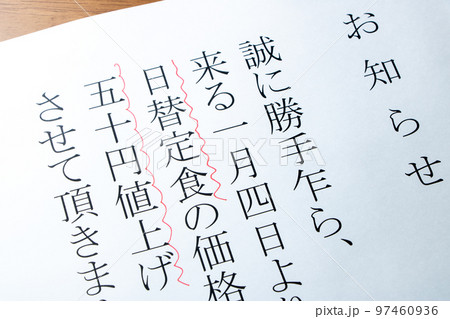 お知らせ
誠に勝手乍ら、
来る一月四日より
日替定食の価格
五十円値上げ
させて頂きま